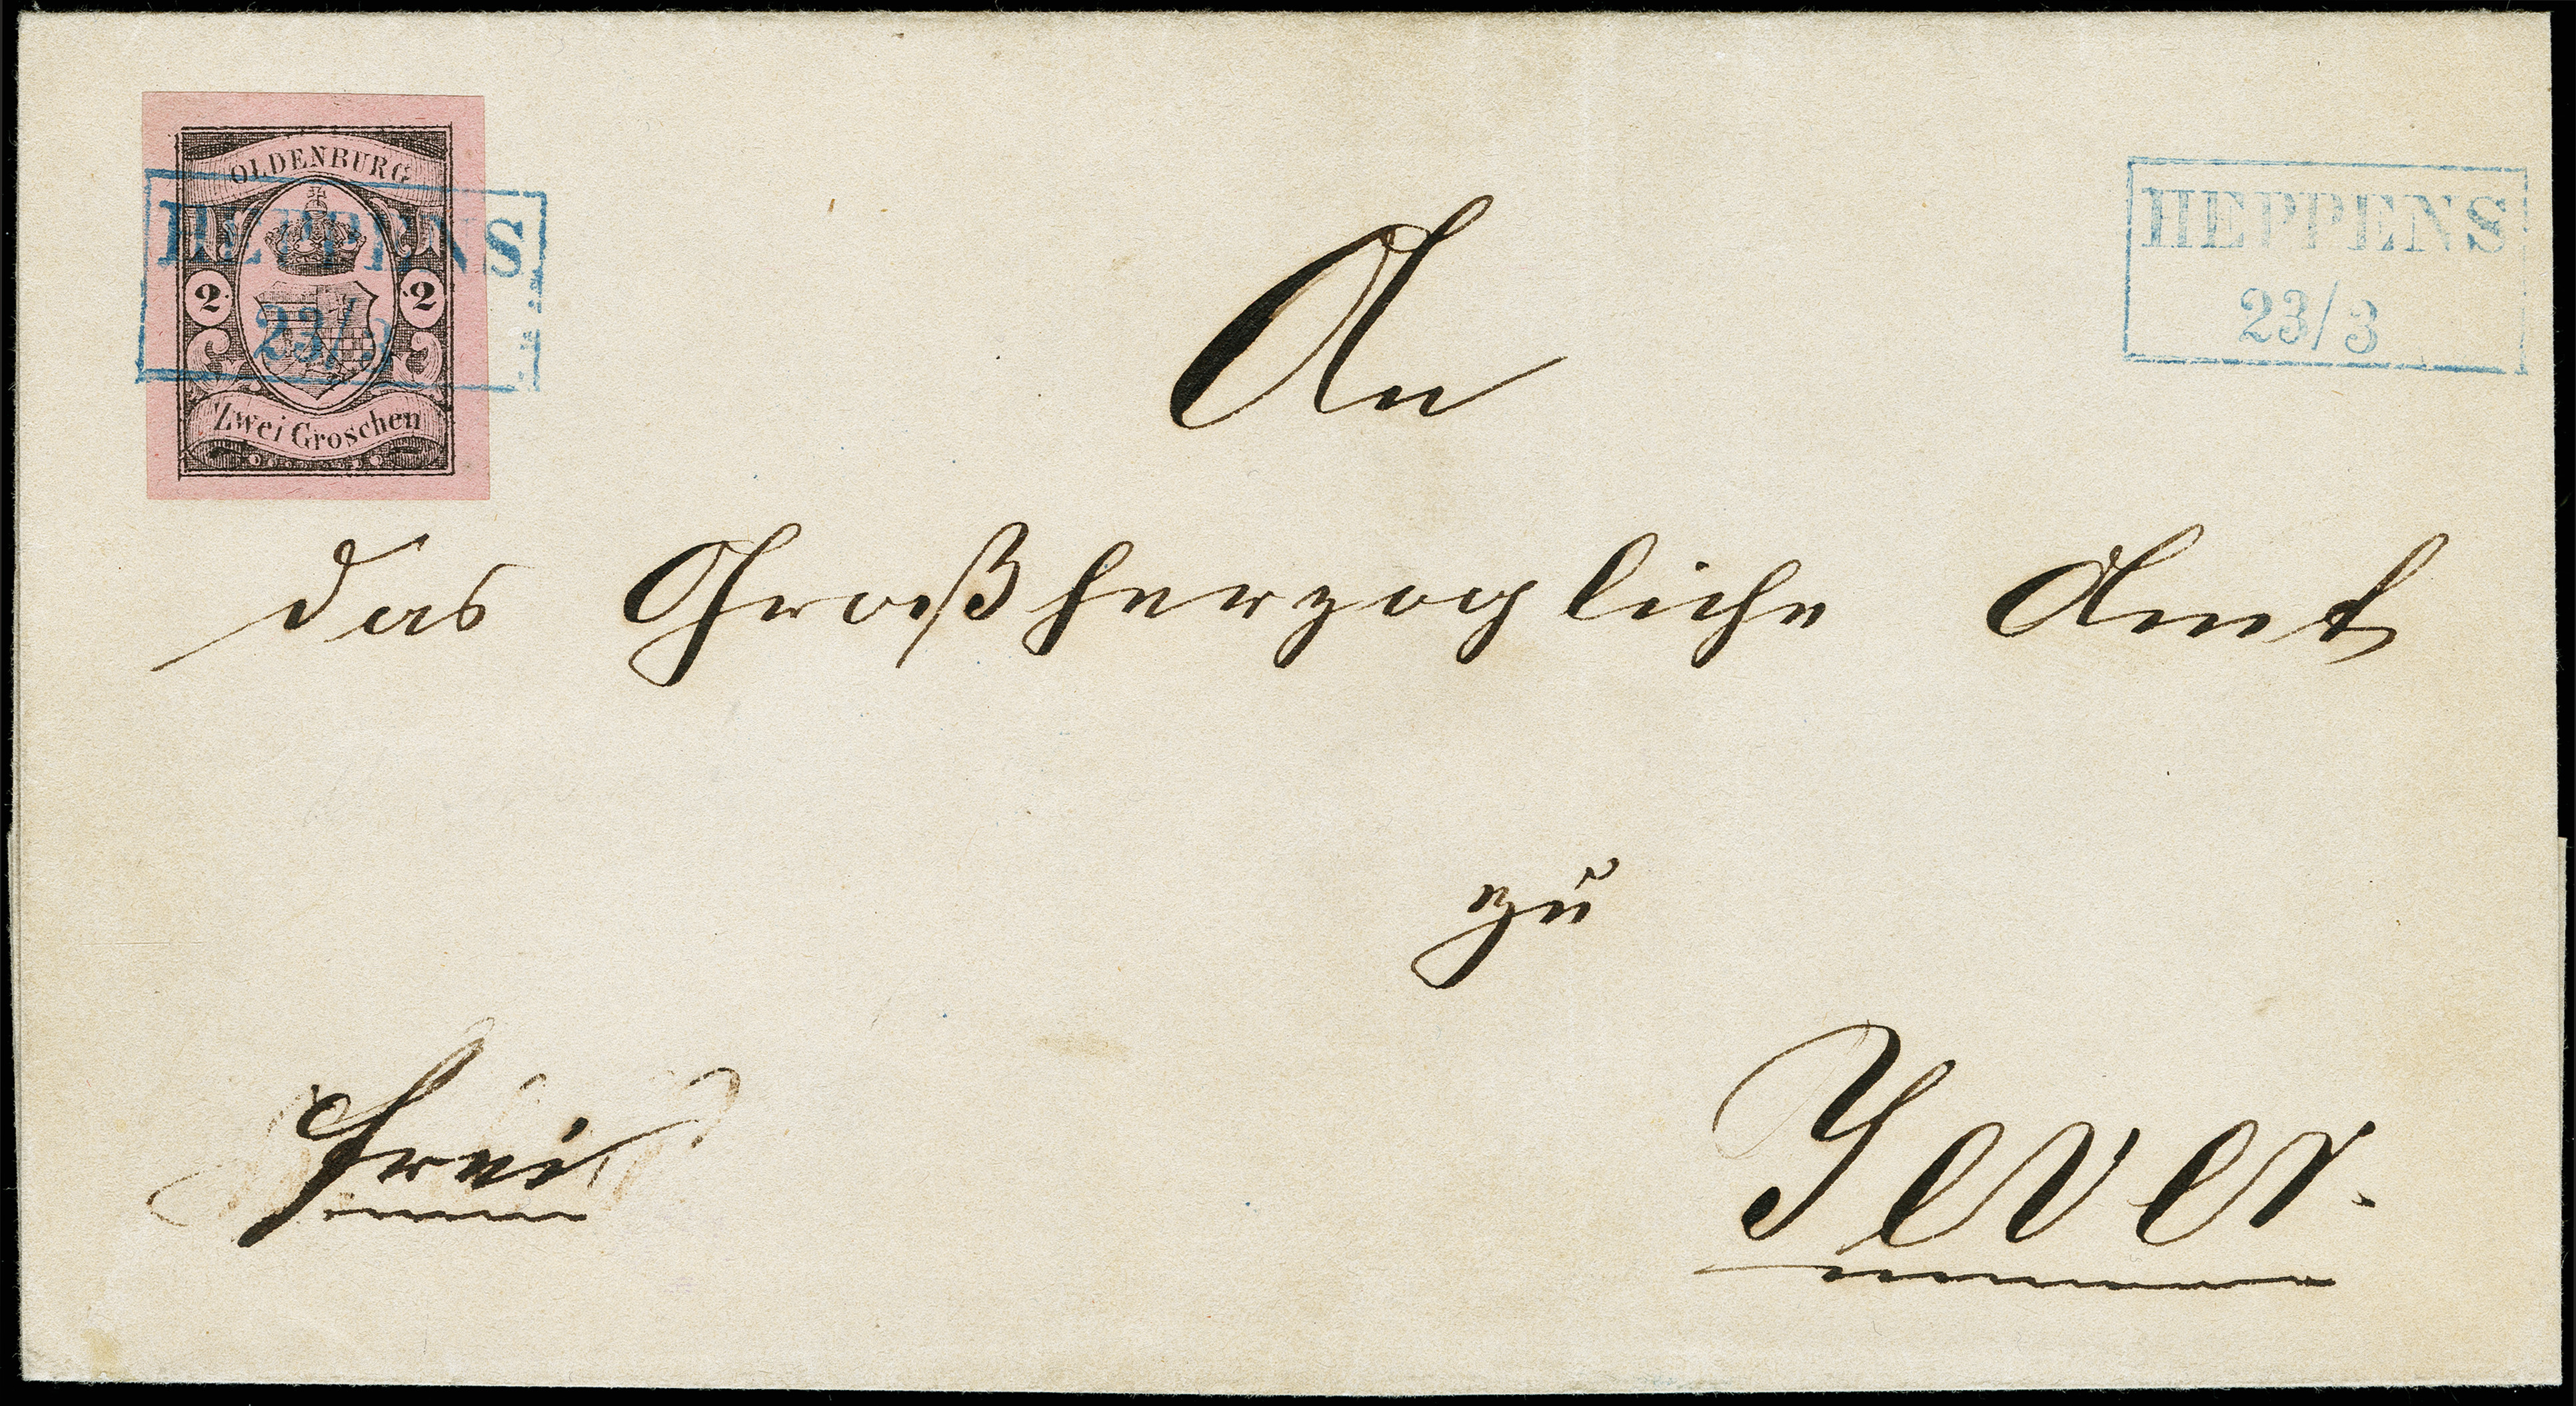 OLDENBURG
2 2
Zwei Groschen
HEPPENS
23/3
HEPPENS
23/3
An
das Großherzogliche Amt
zu
Jever.
frei